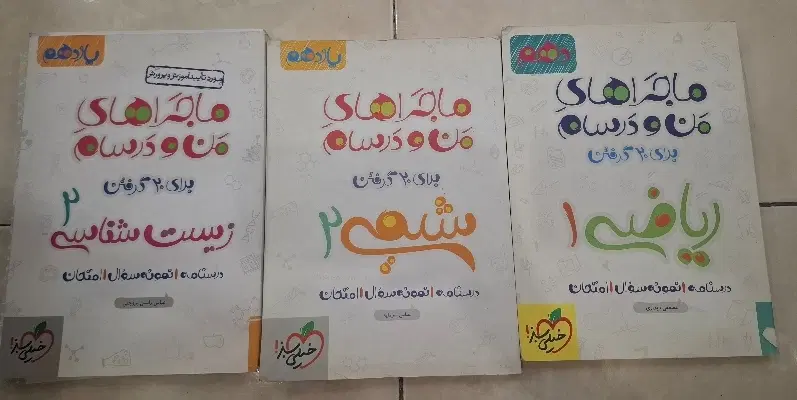 یازدهم
مورد تأیید آموزش و پرورش
ماجراهای
من و درسام
برای ۲۰ گرفتن
زیست شناسی ۲
درسنامه | نمونه سؤال | امتحان
خیلی سبز!
یازدهم
ماجراهای
من و درسام
برای ۲۰ گرفتن
شیمی ۲
درسنامه | نمونه سؤال | امتحان
خیلی سبز!
دهم
ماجراهای
من و درسام
برای ۲۰ گرفتن
ریاضی ۱
درسنامه | نمونه سؤال | امتحان
خیلی سبز!